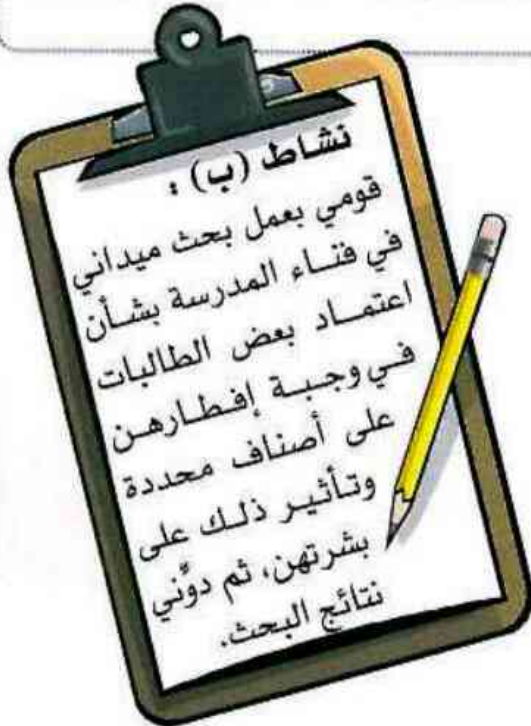 نشاط (ب) :
قومي بعمل بحث ميداني
في فناء المدرسة بشأن
اعتماد بعض الطالبات
في وجبة إفطارهن
على أصناف محددة
وتأثير ذلك على
بشرتهن، ثم دوِّني
نتائج البحث.